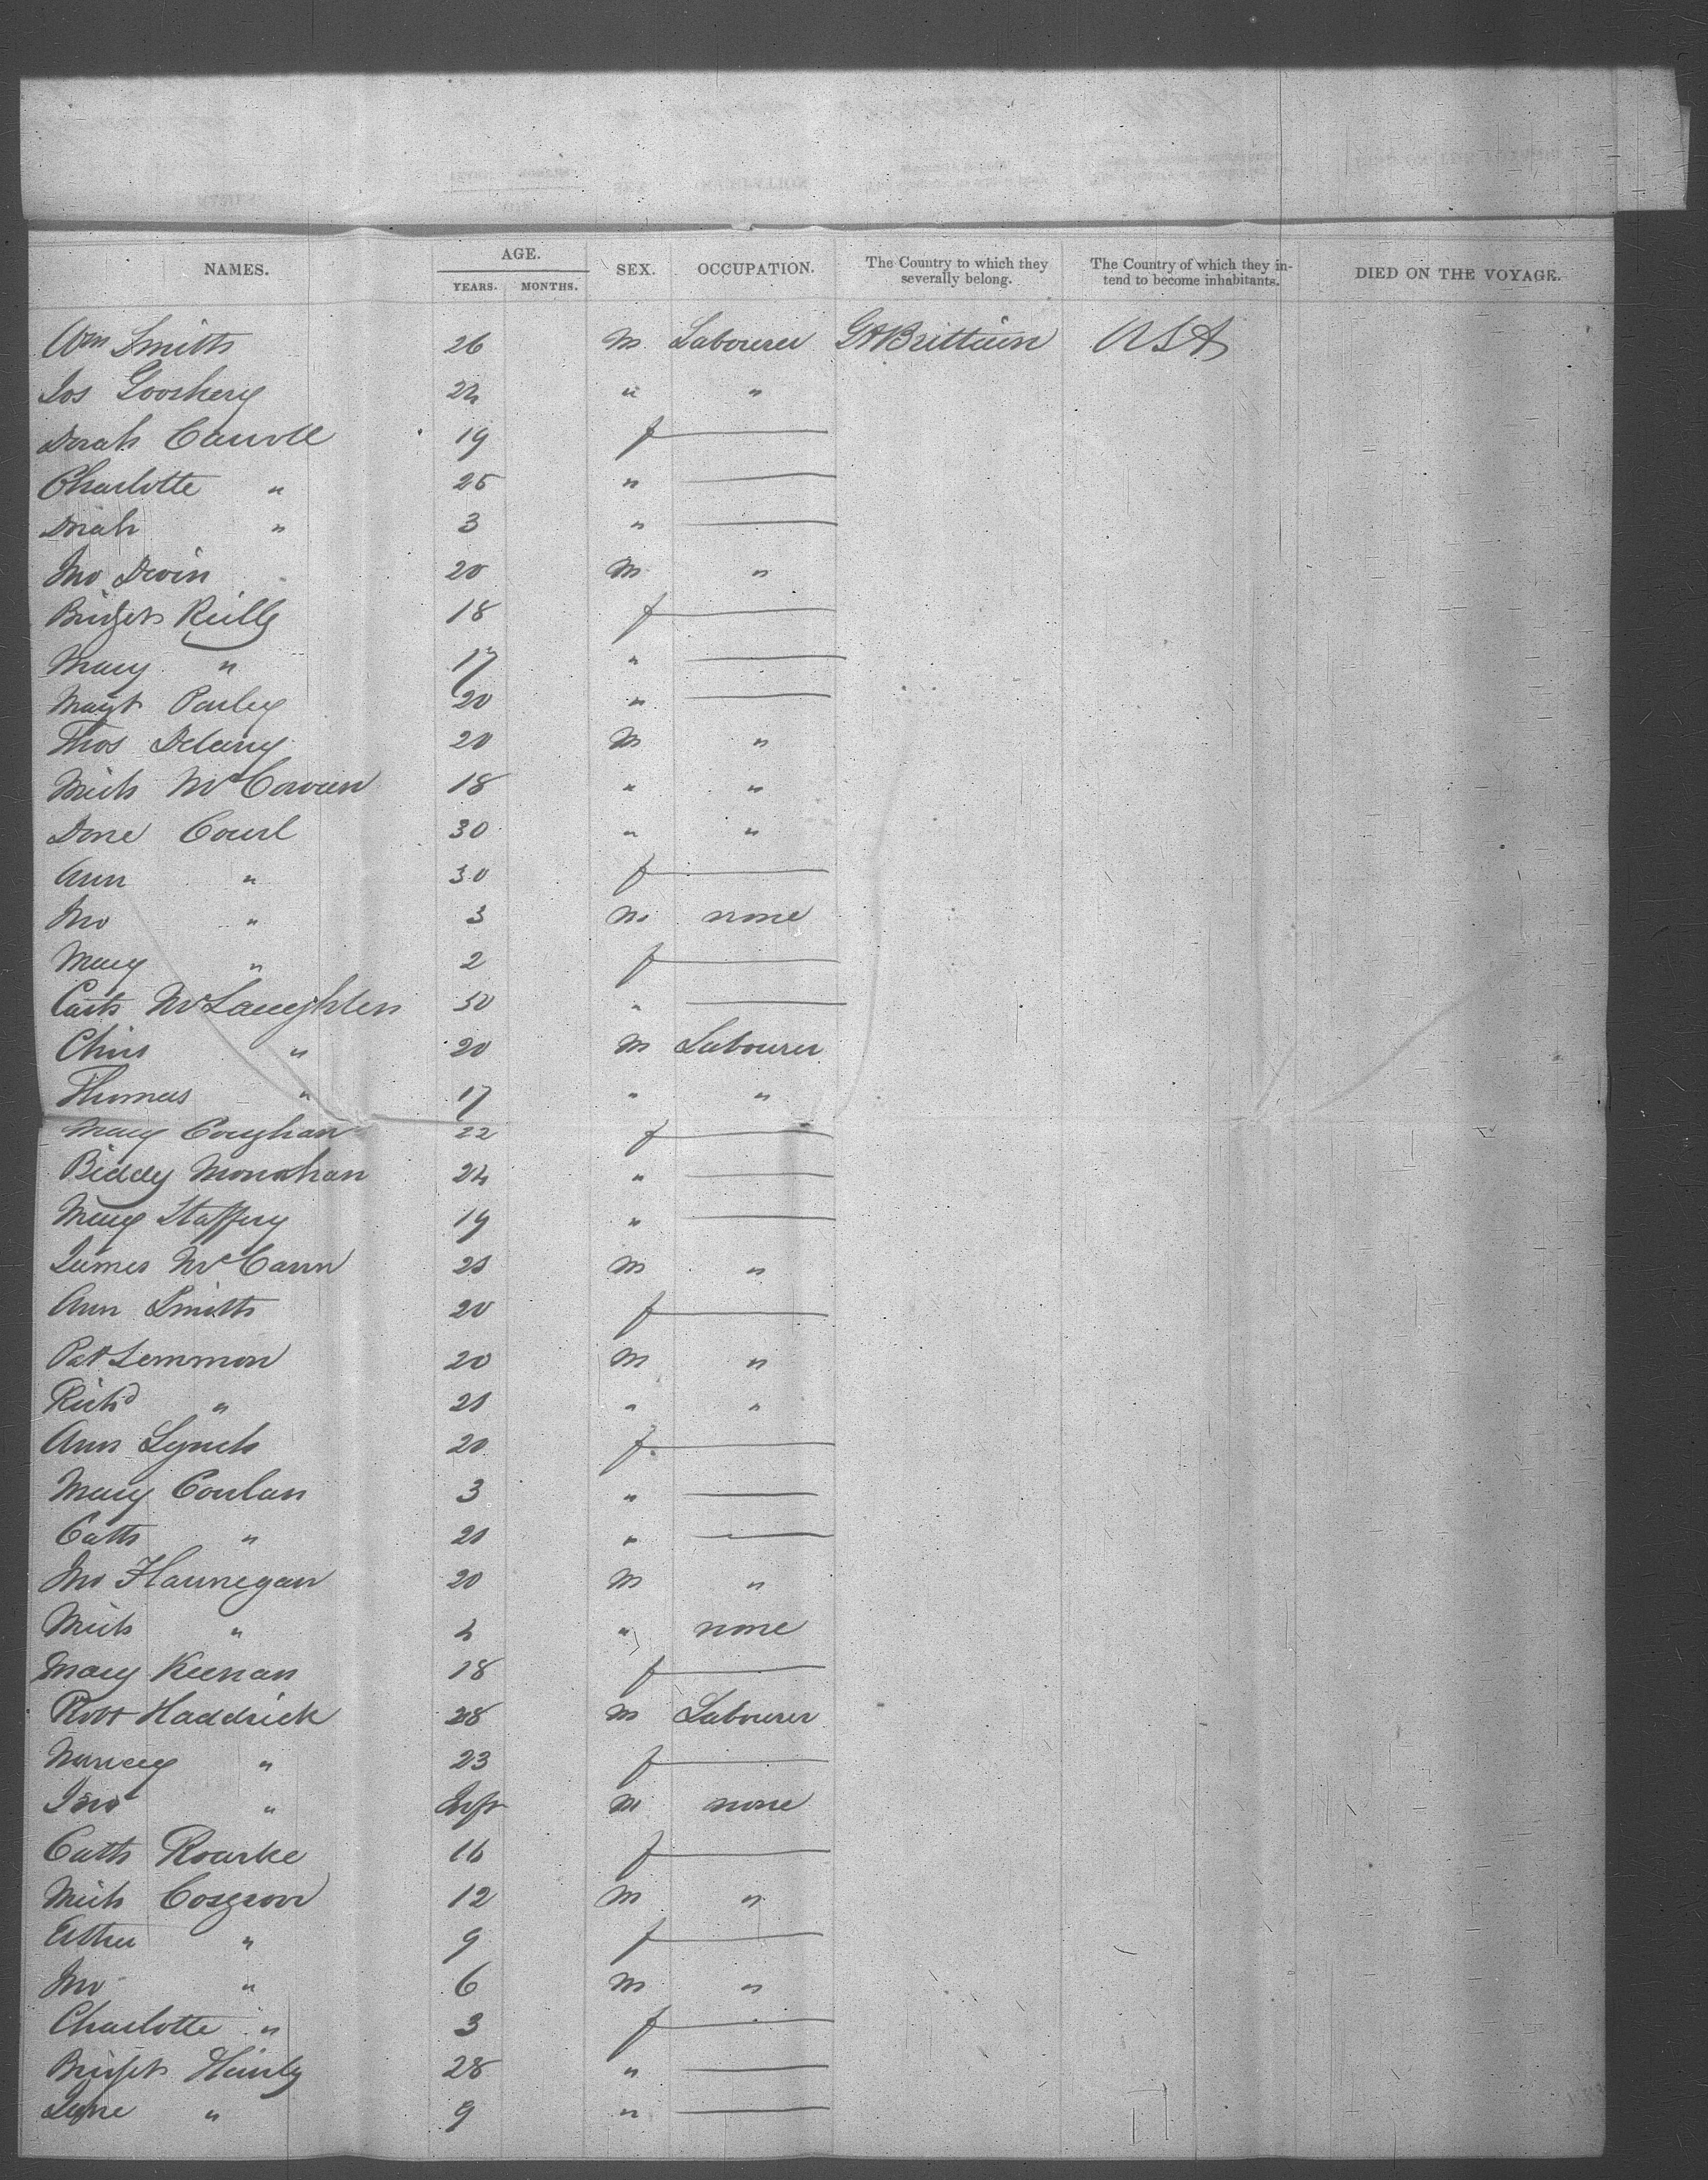 NAMES. AGE. YEARS. MONTHS. SEX. OCCUPATION. The Country to which they severally belong. The Country of which they intend to become inhabitants. DIED ON THE VOYAGE.
Wm Smith 26 M Labourer Gt Brittain USA
Jos 24 " "
Dorah Carroll 19 f
Charlotte " 25 "
Dorah " 3 "
Jno Devin 20 M "
Bridget Reilly 18 f
Mary " 17 "
Margt Parley 20 "
Thos Delany 20 M "
Mich McCowan 18 " "
Done Courl 30 " "
Ann " 30 f
Jno " 3 M none
Mary " 2 f
Cath McLaughlen 50 "
Chris " 20 M Labourer
Thomas " 17 " "
Mary Coughan 22 f
Biddy Monahan 24 "
Mary Staffery 19 "
James McCann 21 M "
Ann Smith 20 f
Pat Lemmon 20 M "
Richd " 21 " "
Ann Lynch 20 f
Mary Conlan 3 "
Cath " 21 "
Jno Flannegan 20 M "
Mich " 4 " none
Mary Keenan 18 f
Robt Haddrick 28 M Labourer
Nancy " 23 f
Jno " Inft M none
Cath Roarke 16 f
Mich Cosgrove 12 M "
Esther " 9 f
Jno " 6 M "
Charlotte " 3 f
Bridget Hanly 28 "
Jane " 9 "